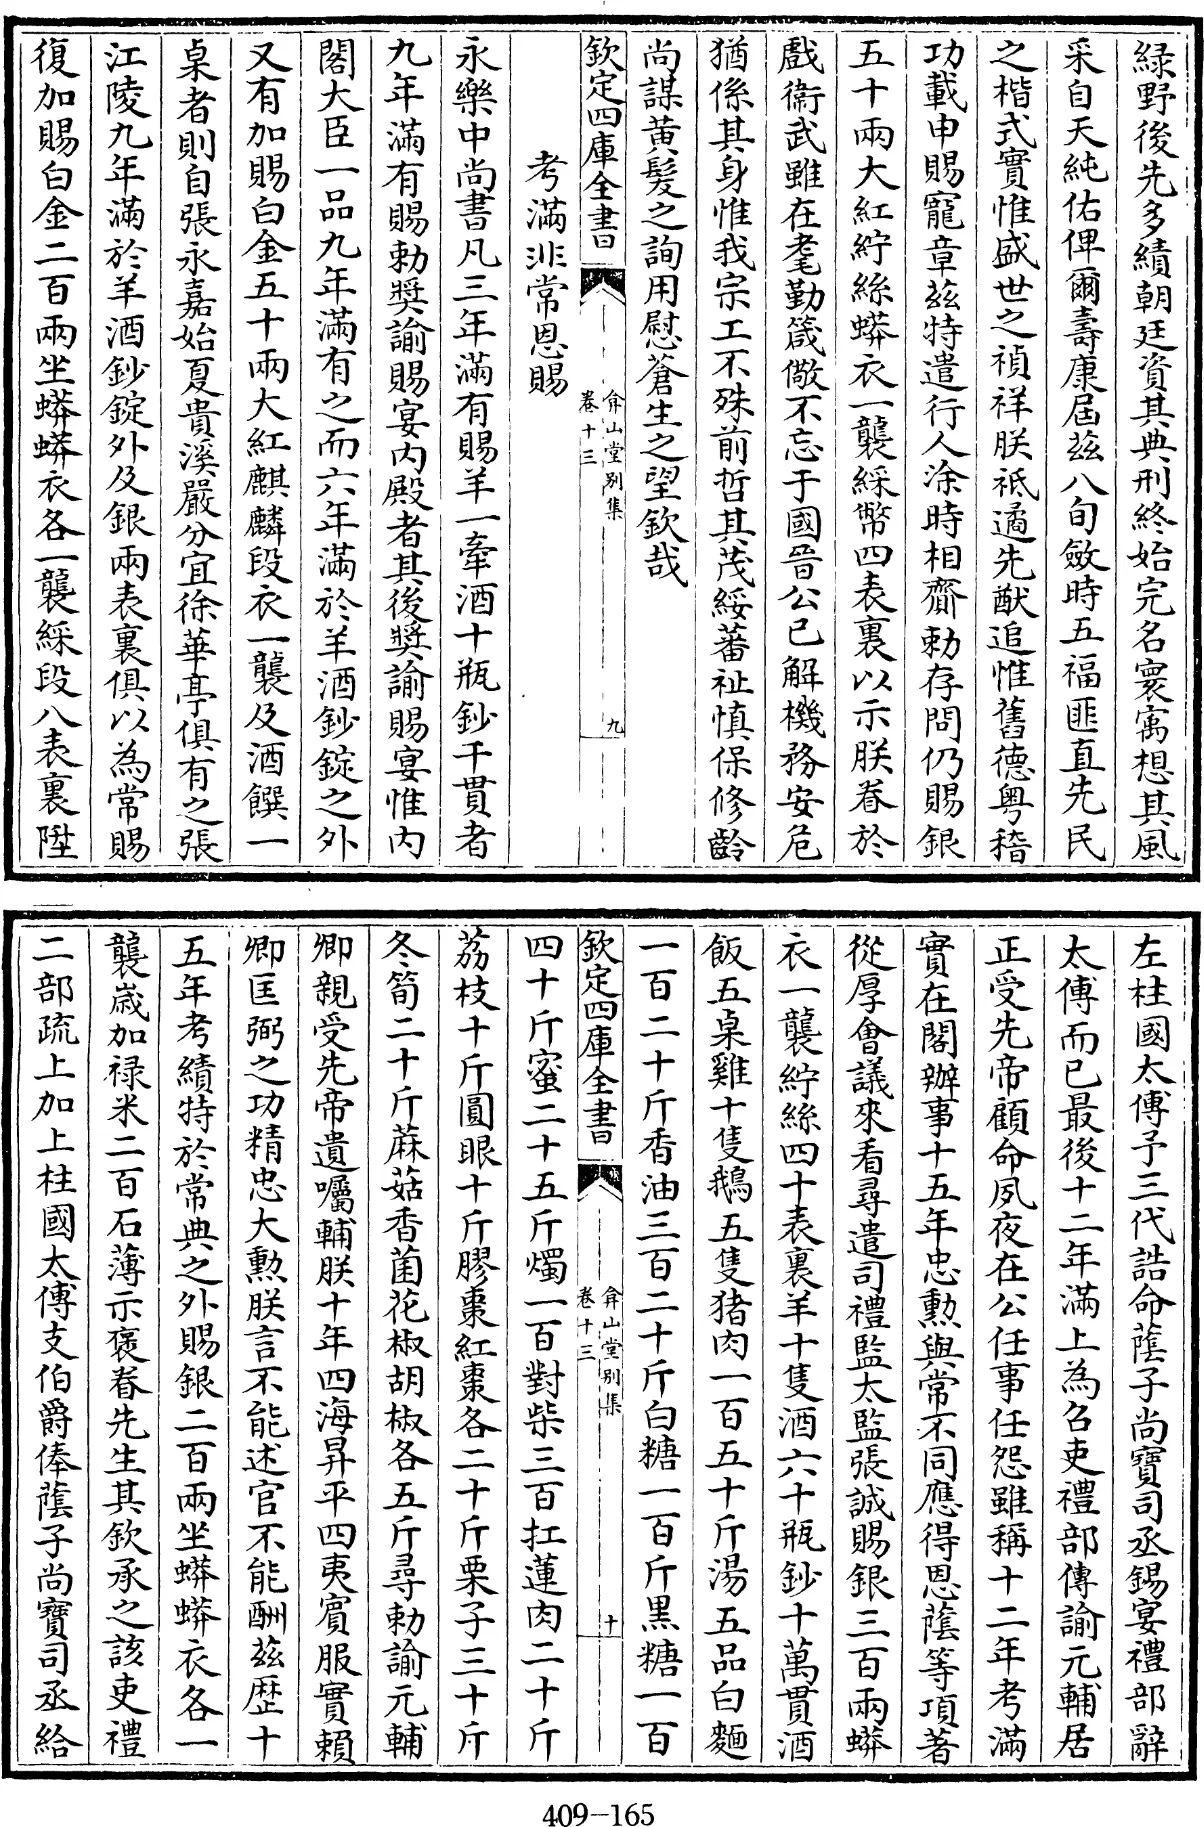 緑野後先多績朝廷資其典刑終始完名寰寓想其風
采自天純佑俾爾壽康屆兹八旬斂時五福匪直先民
之楷式實惟盛世之禎祥朕祗遹先猷追惟舊德粤稽
功載申賜寵章兹特遣行人涂時相齎勅存問仍賜銀
五十兩大紅紵絲蟒衣一襲綵幣四表裏以示朕眷於
戲衞武雖在耄勤箴儆不忘于國晉公已解機務安危
猶係其身惟我宗工不殊前哲其茂綏蕃祉慎保修齡
尚謀黄髪之詢用慰蒼生之望欽哉
欽定四庫全書
弇山堂别集
卷十三
九
考滿非常恩賜
永樂中尚書凡三年滿有賜羊一牽酒十瓶鈔千貫者
九年滿有賜勅奬諭賜宴内殿者其後奬諭賜宴惟内
閣大臣一品九年滿有之而六年滿於羊酒鈔錠之外
又有加賜白金五十兩大紅麒麟段衣一襲及酒饌一
桌者則自張永嘉始夏貴溪嚴分宜徐華亭俱有之張
江陵九年滿於羊酒鈔錠外及銀兩表裏俱以為常賜
復加賜白金二百兩坐蟒蟒衣各一襲綵段八表裏陞
左柱國太傅予三代誥命蔭子尚寶司丞錫宴禮部辭
太傅而已最後十二年滿上為召吏禮部傳諭元輔居
正受先帝顧命夙夜在公任事任怨雖稱十二年考滿
實在閣辦事十五年忠勲與常不同應得恩蔭等項著
從厚會議來看尋遣司禮監太監張誠賜銀三百兩蟒
衣一襲紵絲四十表裏羊十隻酒六十瓶鈔十萬貫酒
飯五桌雞十隻鵝五隻猪肉一百五十斤湯五品白麵
一百二十斤香油三百二十斤白糖一百斤黒糖一百
欽定四庫全書
弇山堂别集
卷十三
十
四十斤蜜二十五斤燭一百對柴三百扛蓮肉二十斤
荔枝十斤圓眼十斤膠棗紅棗各二十斤栗子三十斤
冬筍二十斤蔴菇香菌花椒胡椒各五斤尋勅諭元輔
卿親受先帝遺囑輔朕十年四海昇平四夷賓服實賴
卿匡弼之功精忠大勲朕言不能述官不能酬兹歴十
五年考績特於常典之外賜銀二百兩坐蟒蟒衣各一
襲嵗加禄米二百石薄示褒眷先生其欽承之該吏禮
二部疏上加上柱國太傅支伯爵俸蔭子尚寶司丞給
409-165